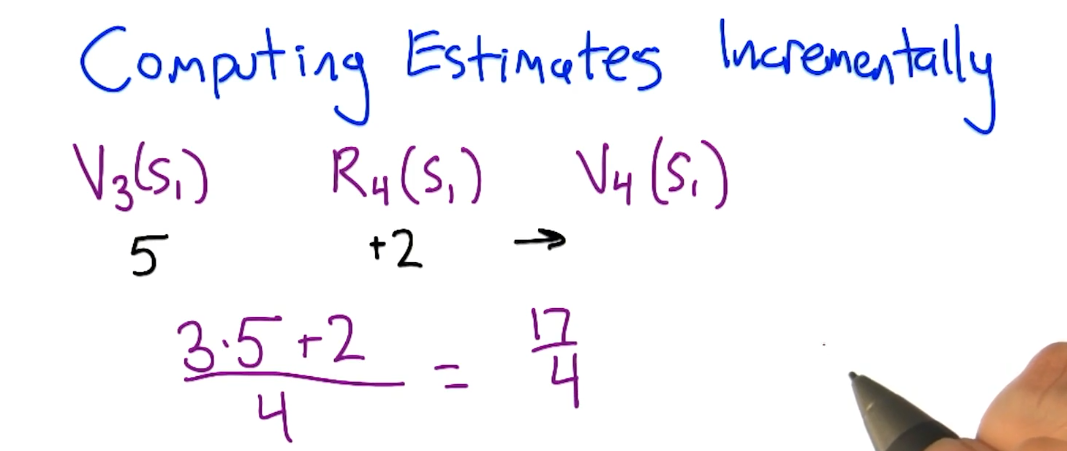 Computing Estimates Incrementally
V₃(S₁) R₄(S₁) V₄(S₁)
5 +2 →
3·5+2 / 4 = 17/4